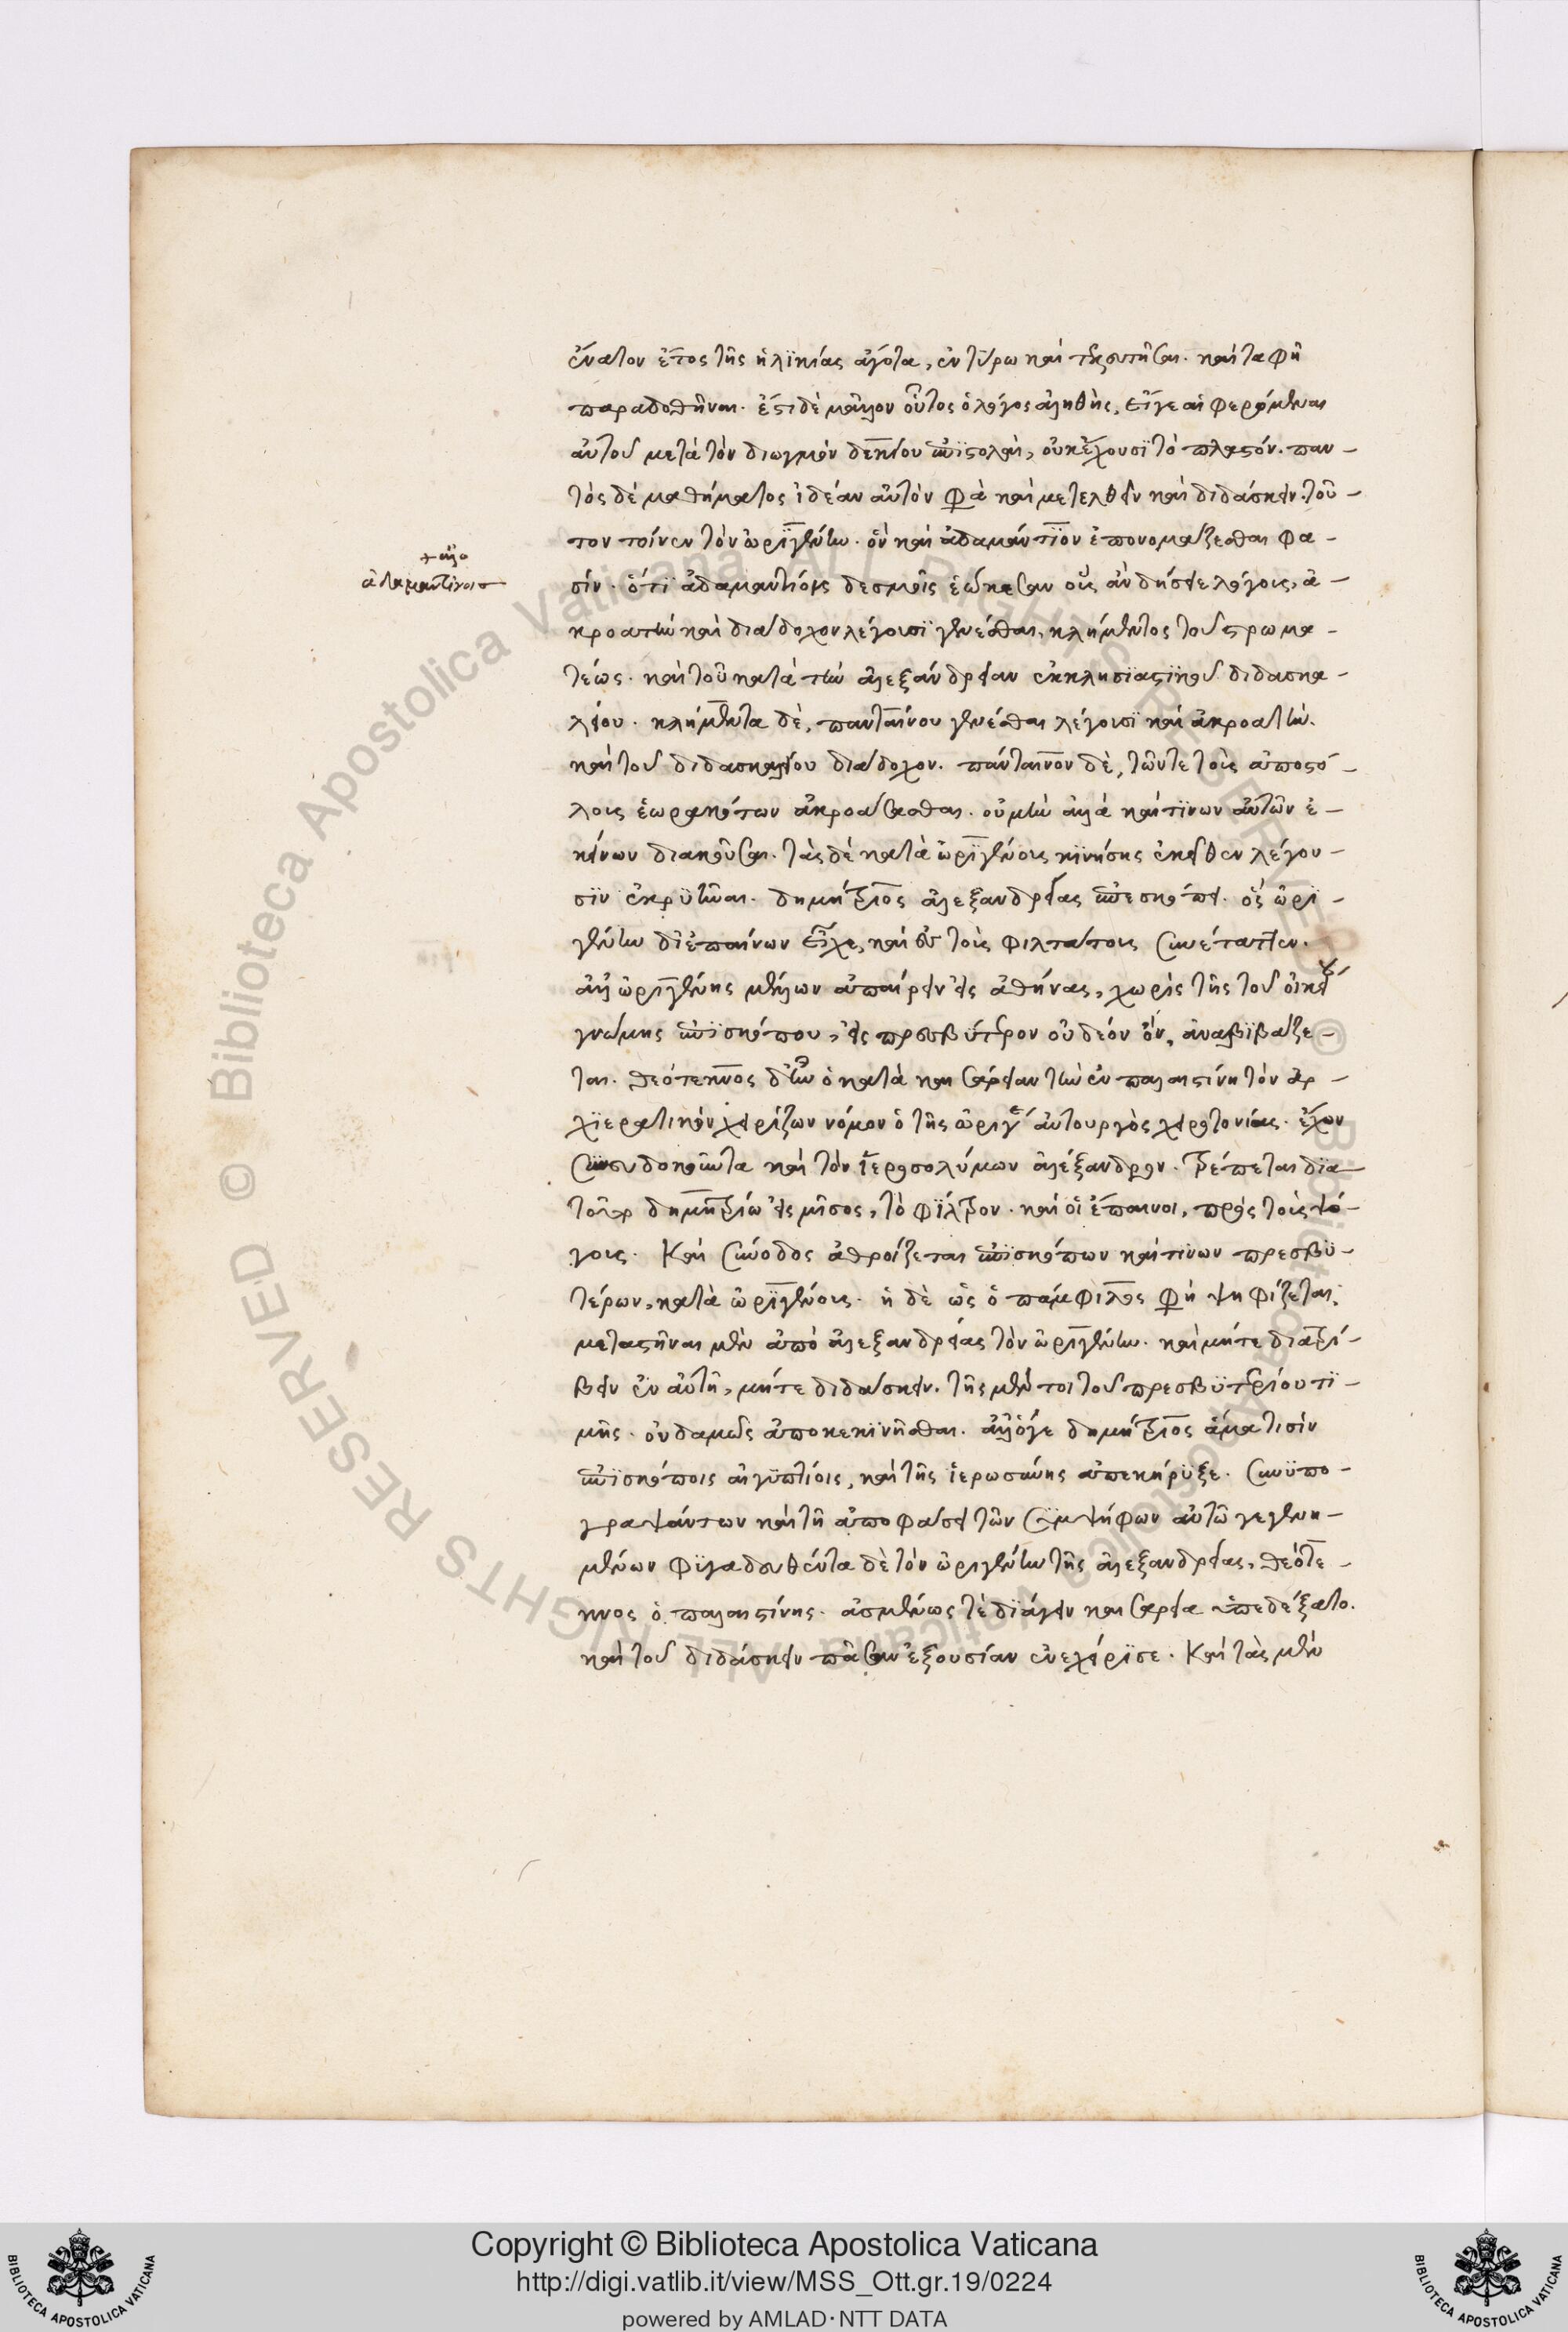 ἔνατον ἔτος τῆς ἡλϊκίας ἄγοντα, ἐν τύρω καὶ τελευτῆσαι. καὶ ταφῆ
παραδοθῆναι. ἔστι δὲ μᾶλλον οὗτος ὁ λόγος ἀληθὴς, εἴγε αἱ φερόμεναι
αὐτοῦ μετὰ τὸν διωγμὸν δεκίου ἐπϊστολαὶ, οὐκ ἔχουσϊ τὸ πλαστόν. παν-
τὸς δὲ μαθήματος ἰδέαν αὐτόν φασι καὶ μετελθεῖν καὶ διδάσκειν. τοῦ-
τον τοίνυν τὸν ὠρϊγένην. ὃν καὶ ἀδαμάντϊον ἐπονομάζεσθαι φα-
σίν. ὅτϊ ἀδαμαντίοις δεσμοῖς ἐώκεσαν οὓς ἂν δήσειε λόγοις, ἀ-
+ ἄλλο
ἀδαμαντίνοισ
κροατὴν καὶ διάδοχον λέγουσϊ γενέσθαι, κλήμεντος τοῦ στρωμα-
τέως. καὶ τοῦ κατὰ τὴν ἀλεξάνδρειαν ἐκκλησϊαστϊκοῦ διδασκα-
λείου. κλήμεντα δὲ, πανταίνου γενέσθαι λέγουσϊ καὶ ἀκροατὴν.
καὶ τοῦ διδασκαλείου διάδοχον. πάνταινον δὲ, τῶν τε τοὺς ἀποστό-
λους ἑωρακότων ἀκροάσασθαι. οὐ μὴν ἀλλὰ καί τϊνων αὐτῶν ἐ-
κείνων διακοῦσαι. τὰς δὲ κατὰ ὠρϊγένους κϊνήσεις ἐκεῖθεν λέγου-
σϊν ἐκρϋῆναι. δημήτριος ἀλεξανδρείας ἐπεσκόπει. ὃς ὠρϊ-
γένην δϊ ἐπαίνων εἶχε, καὶ ἐν τοῖς φιλτάτοις συνέταττεν.
ἀλλ ὠριγένης μέλλων ἀπαίρειν εἰς ἀθήνας, χωρὶς τῆς τοῦ οἰκείου
γνώμης ἐπϊσκόπου, εἰς πρεσβύτερον οὐ δεόν ὂν, ἀναβϊβάζε-
ται. θεότεκνος δ ἦν ὁ κατὰ καισάρειαν τὴν ἐν παλαιστίνη τὸν ἀρ-
χϊερατικὸν χειρίζων νόμον ὁ τῆς ὠριγέ αὐτουργὸς χειροτονίας. ἔχων
συνευδοκοῦντα καὶ τὸν ἱεροσολύμων ἀλέξανδρον. τρέπεται δϊα
τοῦτο δημητρίω εἰς μῖσος, τὸ φΐλτρον. καὶ οἱ ἔπαινοι, πρὸς τοὺς ψό-
γους. Καὶ σύνοδος ἀθροίζεται ἐπϊσκόπων καί τϊνων πρεσβϋ-
τέρων, κατὰ ὠρϊγένους. ἡ δὲ ὡς ὁ πάμφιλος φησὶ ψηφίζεται,
μεταστῆναι μὲν ἀπὸ ἀλεξανδρείας τὸν ὠριγένην. καὶ μήτε διατρί-
βειν ἐν αὐτῆ, μήτε διδάσκειν. τῆς μέν τοι τοῦ πρεσβϋτερίου τϊ-
μῆς. οὐδαμῶς ἀποκεκϊνῆσθαι. ἀλλ ὅγε δημήτριος ἅμα τισὶν
ἐπϊσκόποις αἰγϋπτίοις, καὶ τῆς ἱερωσύνης ἀπεκήρϋξε. συνϋπο-
γραψάντων καὶ τῆ ἀποφάσει τῶν συμψήφων αὐτῶ γεγενη-
μένων φϋγαδευθέντα δὲ τὸν ὠριγένην τῆς ἀλεξανδρείας, θεότε-
κνος ὁ παλαιστίνης. ἀσμένως τὲ δϊάγειν καισαρεία ὑπεδέξατο.
καὶ τοῦ διδάσκειν πᾶσαν ἐξουσίαν ἐνεχείρϊσε. Καὶ τὰς μὲν
Copyright © Biblioteca Apostolica Vaticana
http://digi.vatlib.it/view/MSS_Ott.gr.19/0224
powered by AMLAD·NTT DATA